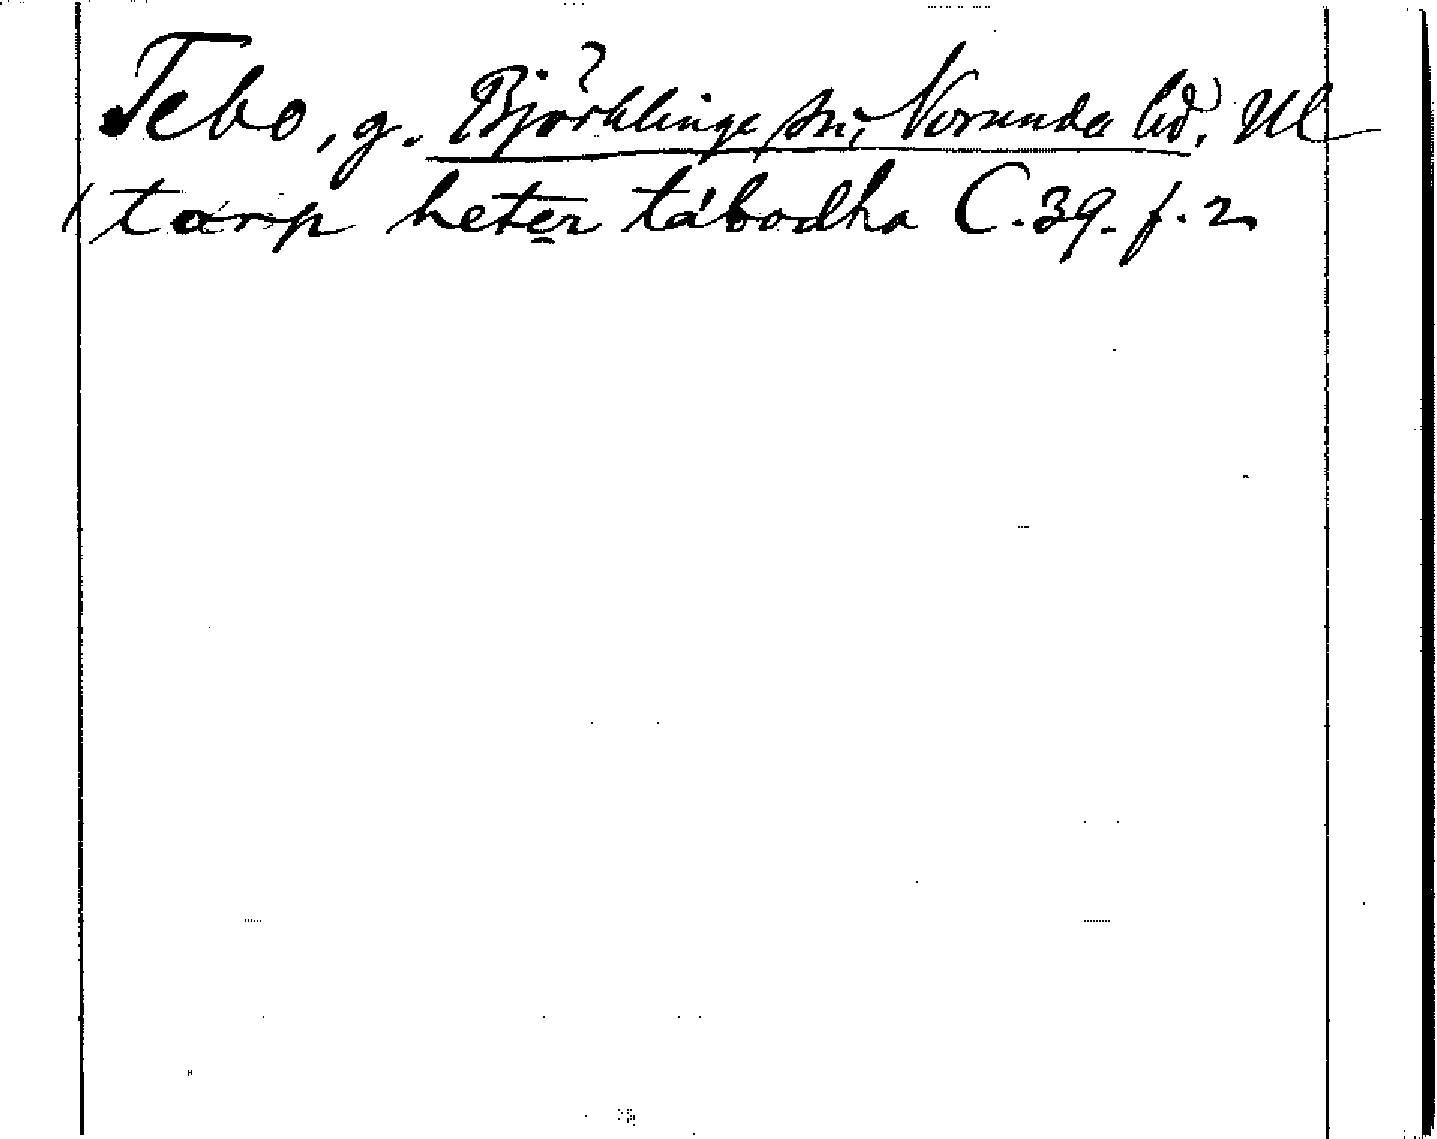 Tebo, g. Björklinge sn, Norunda hd. Ul
(tarp heter tábodha C. 39. f. 2